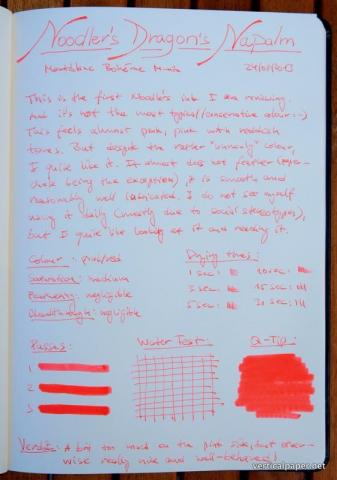 Noodler's Dragon's Napalm
Montblanc Bohème 24/01/2013
This is the first Noodler's ink I am reviewing.
And it's not the most typical/conservative colour :-)
This feels almost pink, pink with reddish
tones. But despite the rather "unmanly" colour,
I quite like it. It almost does not feather
being the exception), it is smooth and
reasonably well lubricated. I do not see myself
using it daily (mostly due to social stereotypes),
but I quite like looking at it and reading it.
Colour : pink/red
Saturation: medium
Feathering: negligible
Bleedthrough: negligible
Drying times:
1 sec: 10 sec:
3 sec: 15 sec:
5 sec: 20 sec:
Passes:
1
2
3
Water Test:
Q-Tip:
Verdict: A bit too much on the pink side, but other-
wise really nice and well-behaved!
verticalpaper.net